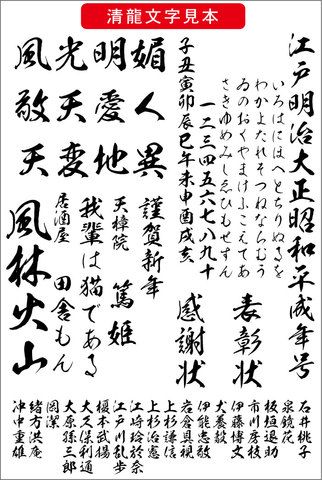 清龍文字見本
江戸明治大正昭和平成年号
いろはにほへとちりぬるを
わかよたれそつねならむう
ゐのおくやまけふこえてあ
さきゆめみしゑひもせすん
一二三四五六七八九十
子丑寅卯辰巳午未申酉戌亥
媚人異
明愛地
光天変
風敬天
表彰状
感謝状
謹賀新年
天樟院 篤姫
我輩は猫である
居酒屋 田舎もん
風林火山
石井桃子
泉鏡花
板垣退助
市川房枝
伊藤博文
犬養毅
伊能忠敬
岩倉具視
上杉謙信
上杉治憲
江崎玲於奈
江戸川乱歩
榎本武揚
大久保利通
大原孫三郎
岡潔
緒方洪庵
沖中重雄